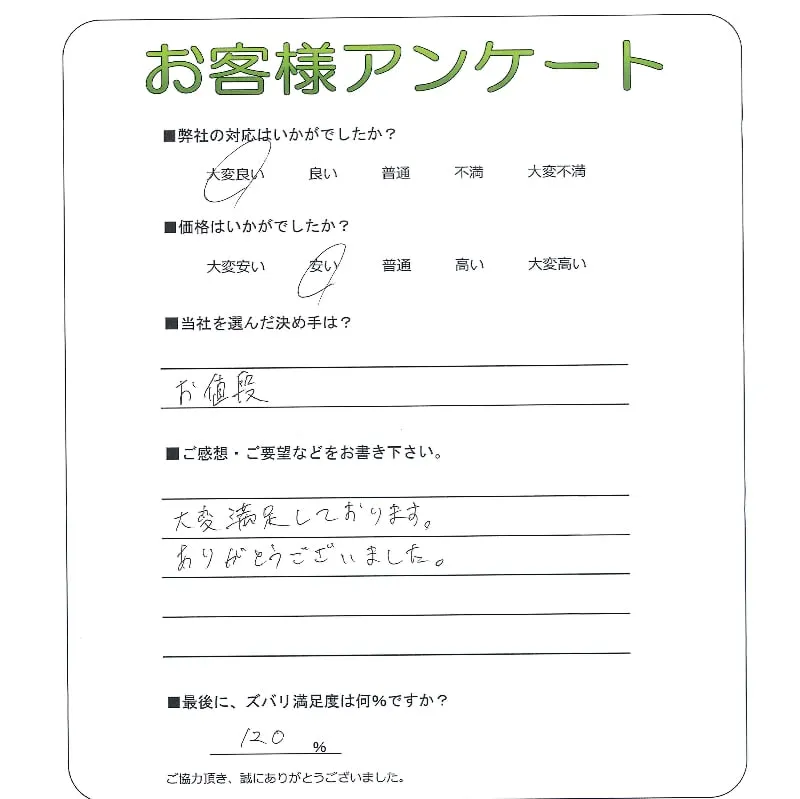 お客様アンケート
■弊社の対応はいかがでしたか？
大変良い 良い 普通 不満 大変不満
■価格はいかがでしたか？
大変安い 安い 普通 高い 大変高い
■当社を選んだ決め手は？
お値段
■ご感想・ご要望などをお書き下さい。
大変満足しております。
ありがとうございました。
■最後に、ズバリ満足度は何%ですか？
120 %
ご協力頂き、誠にありがとうございました。